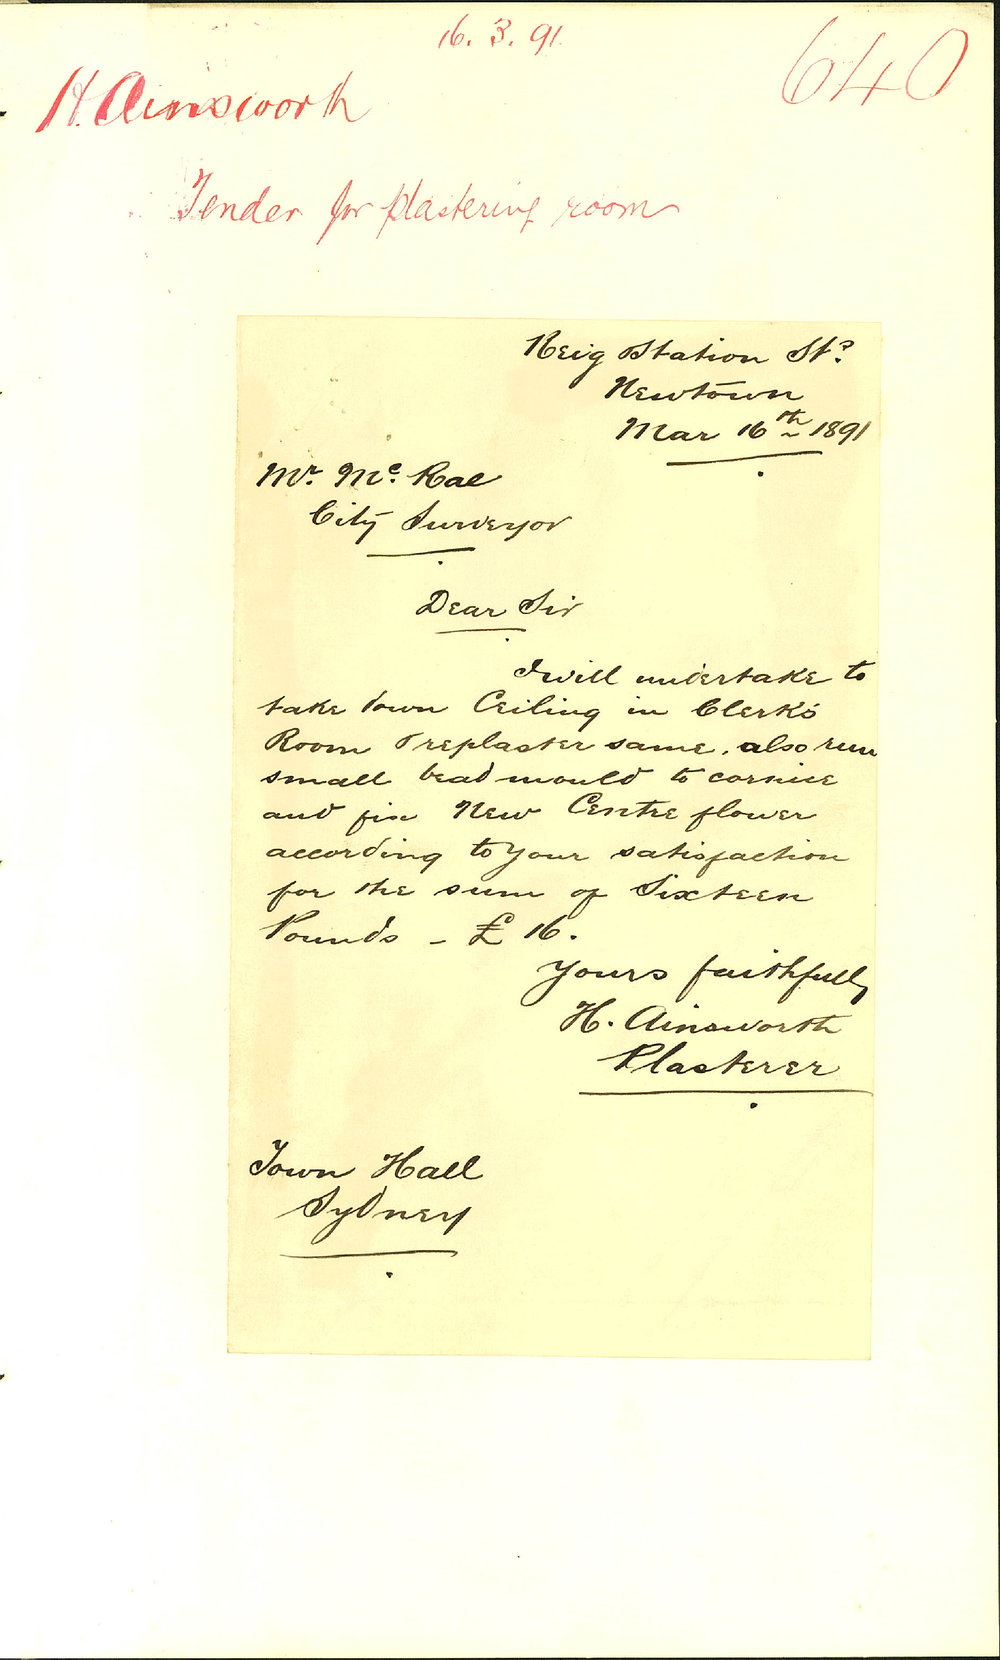 16. 3. 91
640
H. Ainsworth
Tender for plastering room
Station St.
Newtown
Mar 16th 1891
Mr. Mc. Rae
City Surveyor
Dear Sir
I will undertake to
take down Ceiling in Clerk's
Room & replaster same, also run
small bead mould to cornice
and fix New Centre flower
according to Your satisfaction
for the sum of Sixteen
Pounds - £ 16.
Yours faithfully
H. Ainsworth
Plasterer
Town Hall
Sydney